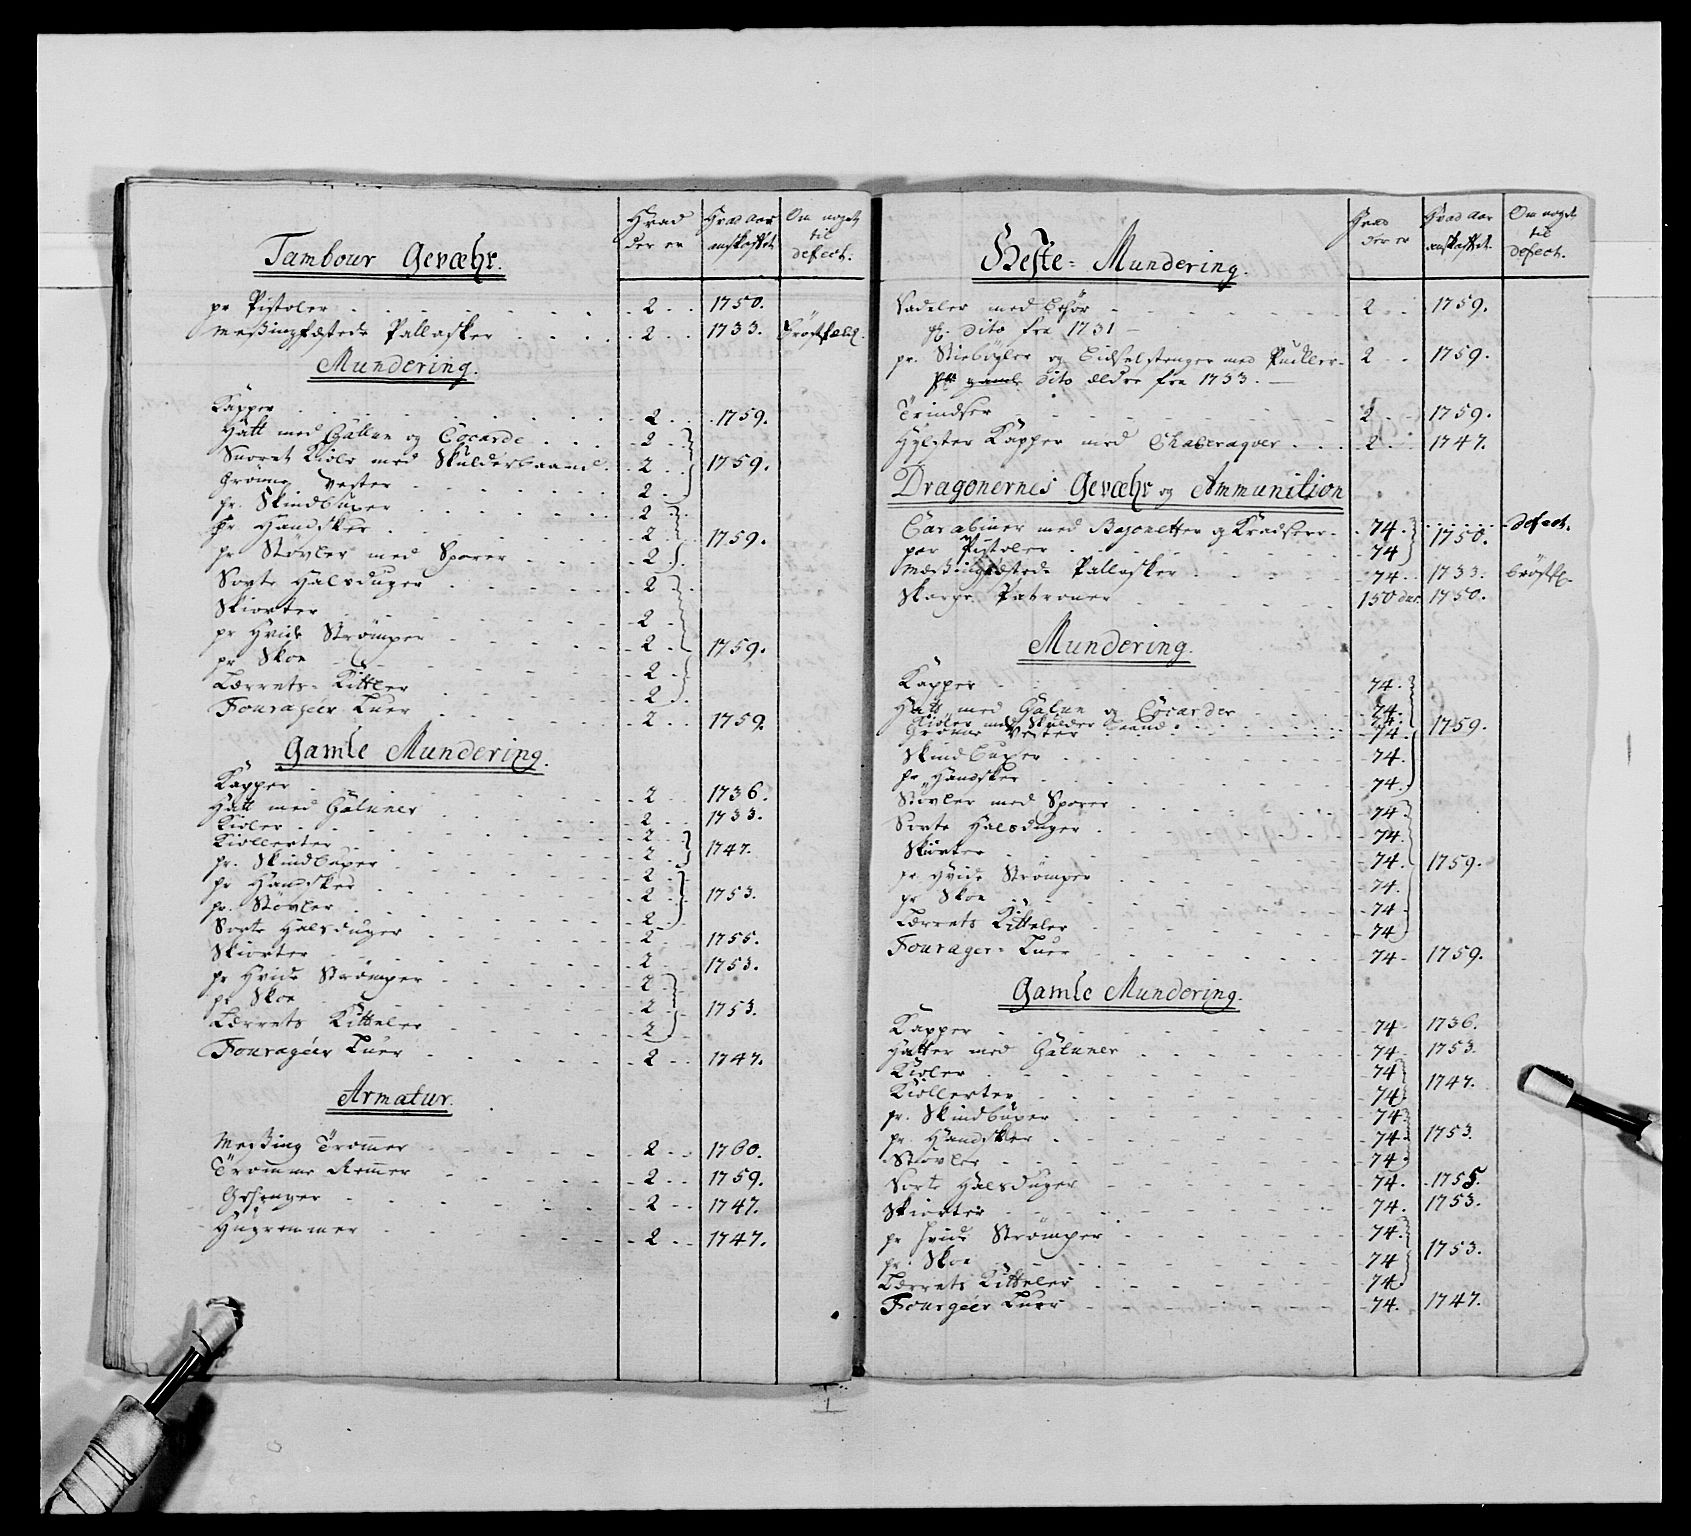 Hvad der er
Hvad aar anskaffet
Om noget til defect.
Tambour Geværhr.
pr Pistoler 2 1750.
Messingfæstede Pallasker 2 1733. Brøstfæld.
Mundering.
Kapper 2 1759.
Hatt med Gallun og Cocarde 2
Kiole med Skulderbaand 2 1759.
Grönne Vester 2
pr. Skindbuxer 2
pr. Handsker 2 1759.
pr Støvler med Sporer 2
Sorte Halsduger 2
Skiorter 2
pr Hvide Strømper 2 1759.
pr Skoe 2
Lærrets Kittler 2
Fourageer Luer 2 1759.
Gamle Mundering.
Kapper 2 1736.
Hatt med Galuner 2 1733.
Kioler 2
Kiollerter 2 1747.
pr. Skindbuxer 2
pr Handsker 2 1753.
pr. Støvler 2
Sorte Halsduger 2 1755.
Skiorter 2 1753.
pr Hvide Strømper 2
pr Skoe 2 1753.
Lærrets Kitteler 2
Fourageer Luer 2 1747.
Armatur.
Messing Trommer 2 1760.
Tromme Remmer 2 1759.
Gehenger 2 1747.
2 1747.
Hvad der er
Hvad aar anskaffet.
Om noget til defect.
Heste-Mundering.
Sadeler med Behör 2 1759.
dito fra 1731
pr. Stiebøyler og Bidselstenger med Puckler 2 1759.
gamle dito ældre fra 1733.
Trindser 2 1759.
Hylster Kapper med Chaberaquer 2 1747.
Dragonernes Geværhr og Ammunition
Carabiner med Bajonetter og Kradsere 74 1750. defect.
par Pistoler 74
Messingfæstede Pallasker 74 1733.
Skarpe Patroner 150 1750.
Mundering.
Kapper 74.
Hatt med Galun og Cocarder 74.
Kioler med Skulder Baand 74. 1759.
Grönne Vester 74.
Skindbuxer 74.
pr Handsker 74.
Støvler med Sporer 74.
Sorte Halsduger 74.
Skiorter 74. 1759.
pr Hvide Strømper 74.
pr Skoe 74.
Lærrets Kitteler 74.
Fourager Luer 74 1759.
Gamle Mundering.
Kapper 74 1736.
Hatter med Galuner 74 1753.
Kioler 74
Kiollerter 74 1747.
pr. Skindbuxer 74
pr. Handsker 74 1753.
Støvler 74
Sorte Halsduger 74. 1755.
Skiorter 74. 1753.
pr hvide Strømper 74.
pr. Skoe 74 1753.
Lærrets Kitteler 74
Fourgeer Luer 74. 1747.